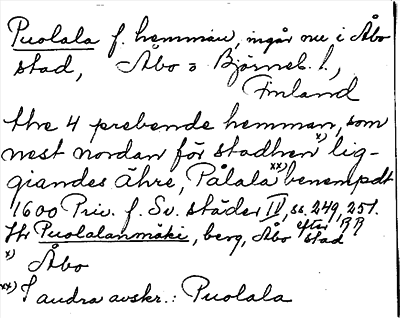 Puolala f. hemman, ingår nu i Åbo
stad, Åbo o Björneb. l.,
Finland
the 4 prebende hemman, som
nest nordan för stadhen x) lig-
giandes ähre, Pålala xx) benempdt
1600 Priv. f. Sv. städer IV, ss. 249, 251.
Hr Puolalanmäki, berg, Åbo stad efter RR
x) Åbo
xx) I andra avskr.: Puolala